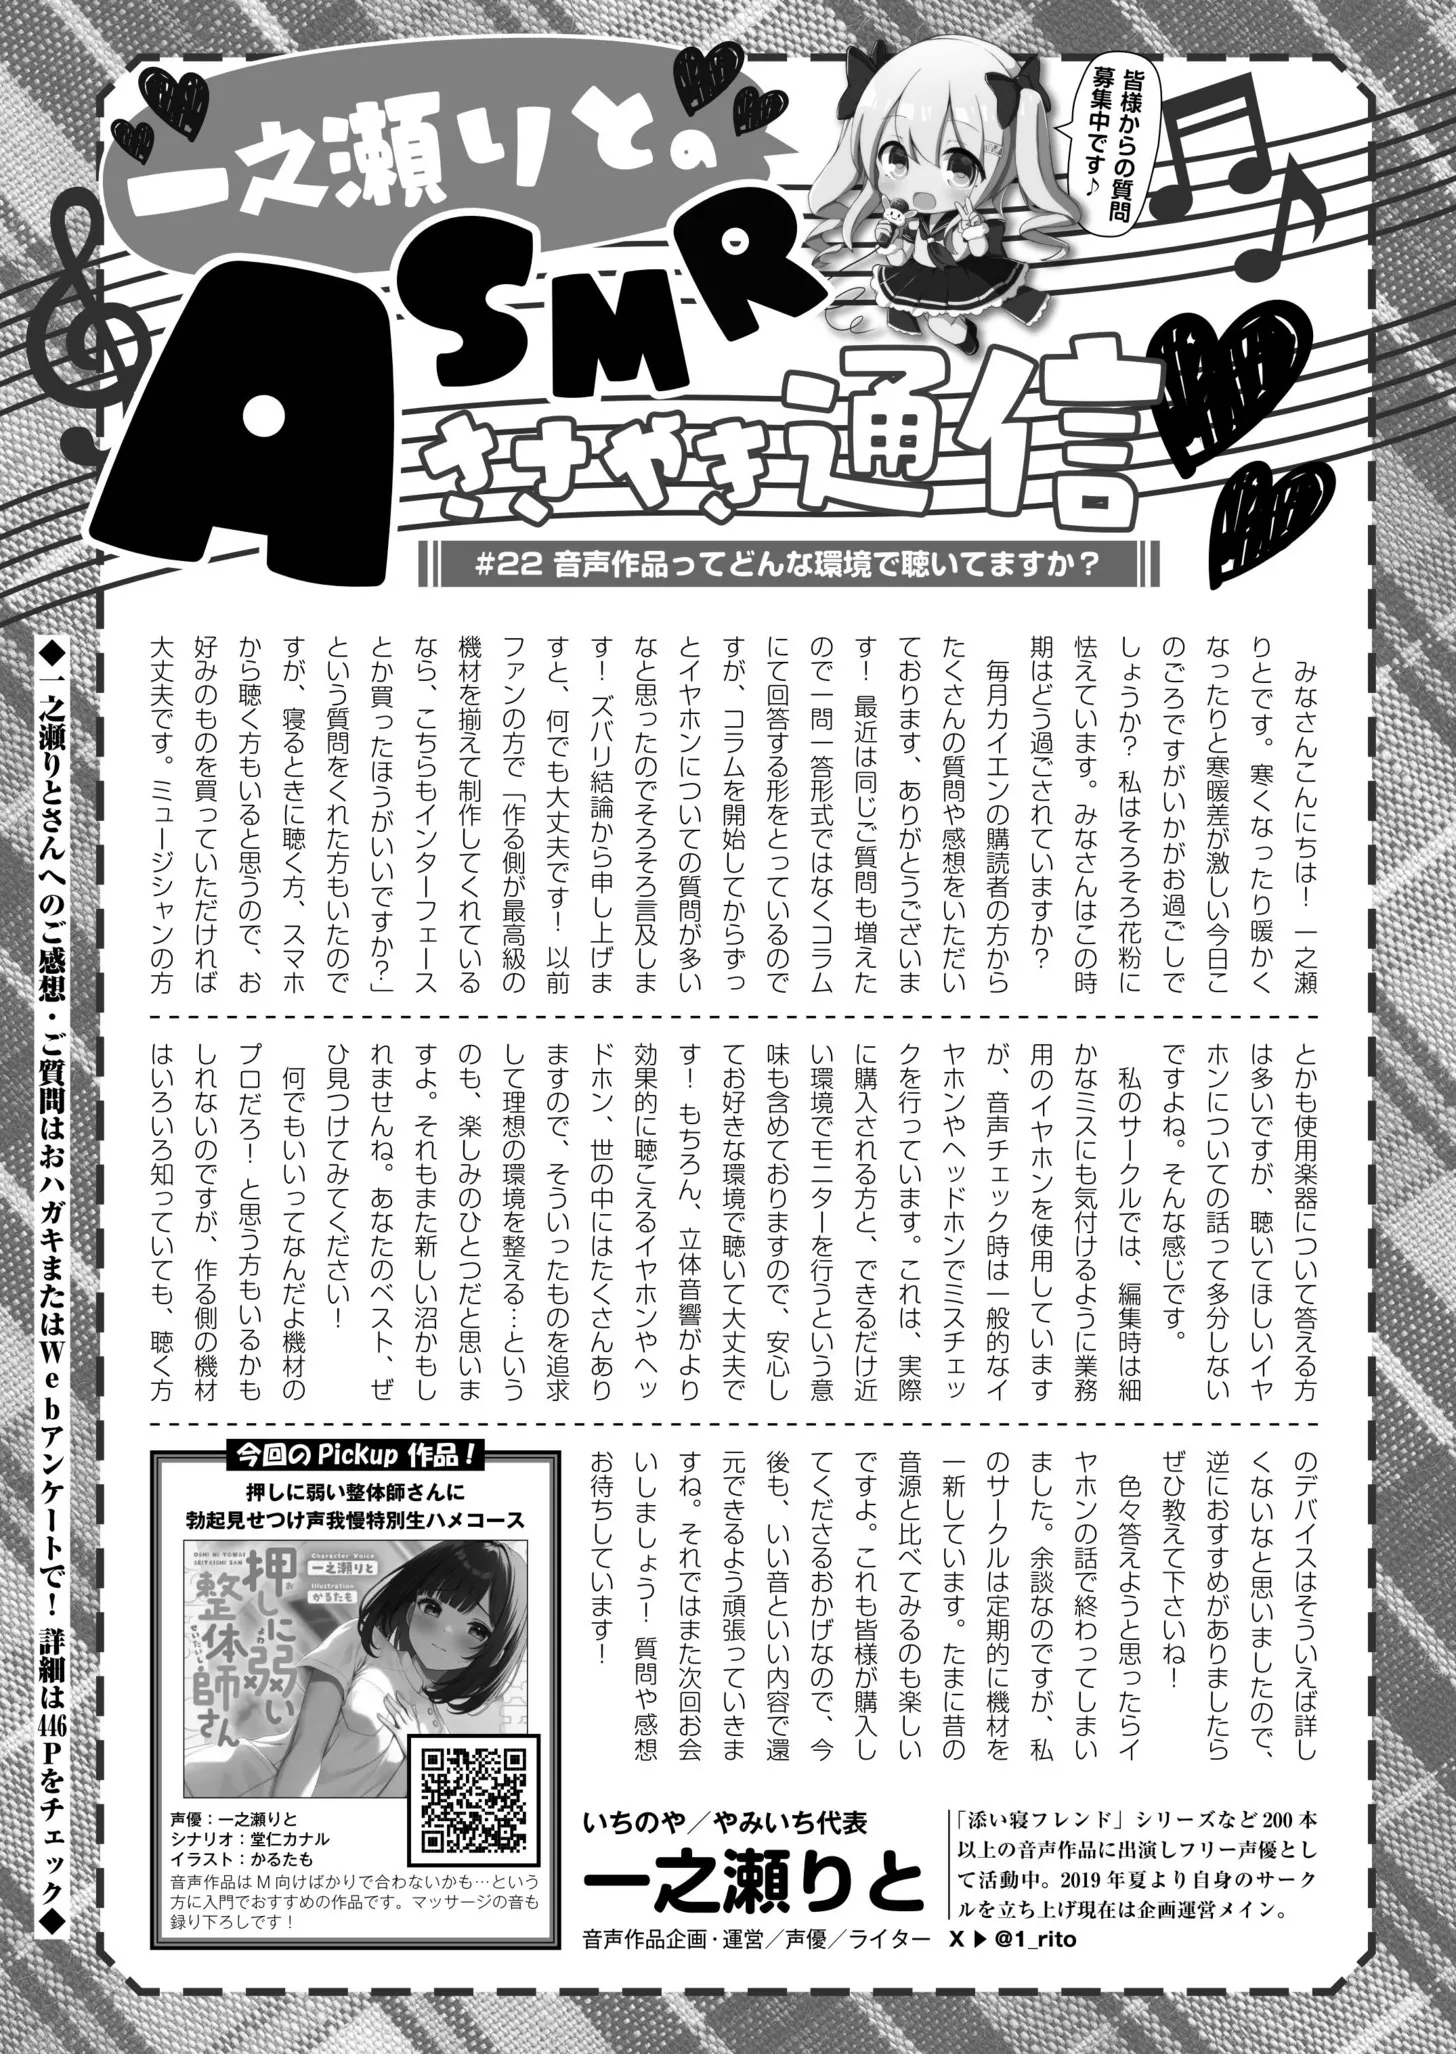 一之瀬りとの
ASMR
ささやき通信
皆様からの質問
募集中です♪
#22 音声作品ってどんな環境で聴いてますか？
みなさんこんにちは！　一之瀬
りとです。寒くなったり暖かく
なったりと寒暖差が激しい今日こ
のごろですがいかがお過ごしで
しょうか？　私はそろそろ花粉に
怯えています。みなさんはこの時
期はどう過ごされていますか？
毎月カイエンの購読者の方から
たくさんの質問や感想をいただい
ております、ありがとうございま
す！　最近は同じご質問も増えた
ので一問一答形式ではなくコラム
にて回答する形をとっているので
すが、コラムを開始してからずっ
とイヤホンについての質問が多い
なと思ったのでそろそろ言及しま
す！　ズバリ結論から申し上げま
すと、何でも大丈夫です！　以前
ファンの方で「作る側が最高級の
機材を揃えて制作してくれている
なら、こちらもインターフェース
とか買ったほうがいいですか？」
という質問をくれた方もいたので
すが、寝るときに聴く方、スマホ
から聴く方もいると思うので、お
好みのものを買っていただければ
大丈夫です。ミュージシャンの方
とかも使用楽器について答える方
は多いですが、聴いてほしいイヤ
ホンについての話って多分しない
ですよね。そんな感じです。
私のサークルでは、編集時は細
かなミスにも気付けるように業務
用のイヤホンを使用しています
が、音声チェック時は一般的なイ
ヤホンやヘッドホンでミスチェッ
クを行っています。これは、実際
に購入される方と、できるだけ近
い環境でモニターを行うという意
味も含めておりますので、安心し
てお好きな環境で聴いて大丈夫で
す！　もちろん、立体音響がより
効果的に聴こえるイヤホンやヘッ
ドホン、世の中にはたくさんあり
ますので、そういったものを追求
して理想の環境を整える…という
のも、楽しみのひとつだと思いま
すよ。それもまた新しい沼かもし
れませんね。あなたのベスト、ぜ
ひ見つけてみてください！
何でもいいってなんだよ機材の
プロだろ！　と思う方もいるかも
しれないのですが、作る側の機材
はいろいろ知っていても、聴く方
のデバイスはそういえば詳し
くないなと思いましたので、
逆におすすめがありましたら
ぜひ教えて下さいね！
色々答えようと思ったらイ
ヤホンの話で終わってしまい
ました。余談なのですが、私
のサークルは定期的に機材を
一新しています。たまに昔の
音源と比べてみるのも楽しい
ですよ。これも皆様が購入し
てくださるおかげなので、今
後も、いい音といい内容で還
元できるよう頑張っていきま
すね。それではまた次回お会
いしましょう！　質問や感想
お待ちしています！
今回のPickup作品！
押しに弱い整体師さんに
勃起見せつけ声我慢特別生ハメコース
OSHI NI YOWAI
SEITAISHI SAN
押しに弱い
お
よわ
整体師さん
せいたいし
Character Voice
一之瀬りと
Illustration
かるたも
声優：一之瀬りと
シナリオ：堂仁カナル
イラスト：かるたも
音声作品はM向けばかりで合わないかも…という
方に入門でおすすめの作品です。マッサージの音も
録り下ろしです！
いちのや／やみいち代表
一之瀬りと
音声作品企画・運営／声優／ライター
「添い寝フレンド」シリーズなど200本
以上の音声作品に出演しフリー声優とし
て活動中。2019年夏より自身のサーク
ルを立ち上げ現在は企画運営メイン。
X▶@1_rito
◆一之瀬りとさんへのご感想・ご質問はおハガキまたはWebアンケートで！　詳細は446Pをチェック◆